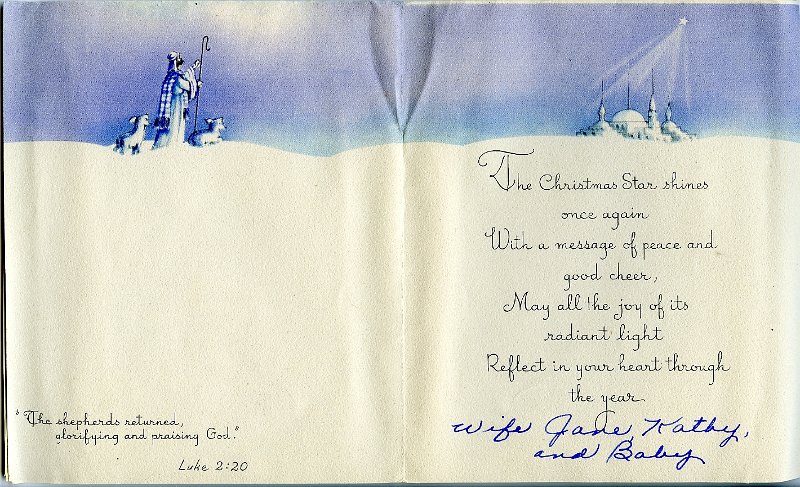 "The shepherds returned,
glorifying and praising God."
Luke 2:20
The Christmas Star shines
once again
With a message of peace and
good cheer,
May all the joy of its
radiant light
Reflect in your heart through
the year.
Wife Jane, Kathy,
and Baby